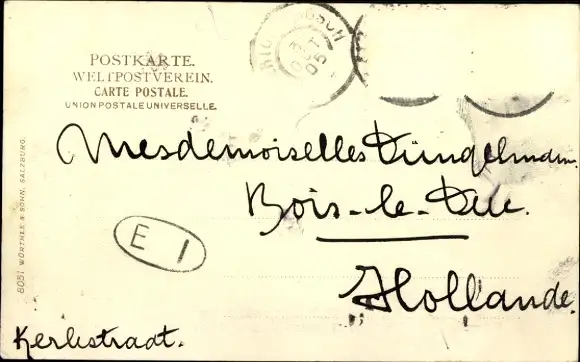 POSTKARTE.
WELTPOSTVEREIN.
CARTE POSTALE.
UNION POSTALE UNIVERSELLE.
8051 WÜRTHLE & SOHN, SALZBURG.
Mesdemoiselles
Bois-le-Duc.
E 1
Hollande.
Kerkstraat.